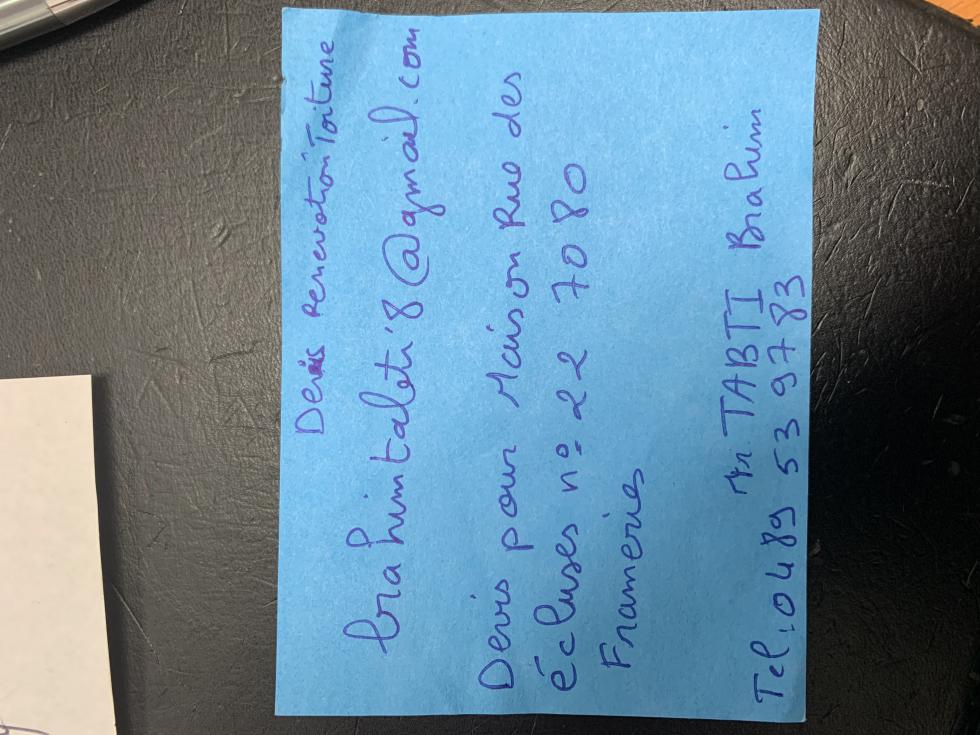 Devis renovation Toiture
brahimtaleti8@gmail.com
Devis pour Maison Rue des
écluses n° 22 7080
Frameries
Mr TABTI Brahim
Tel: 0489 53 97 83